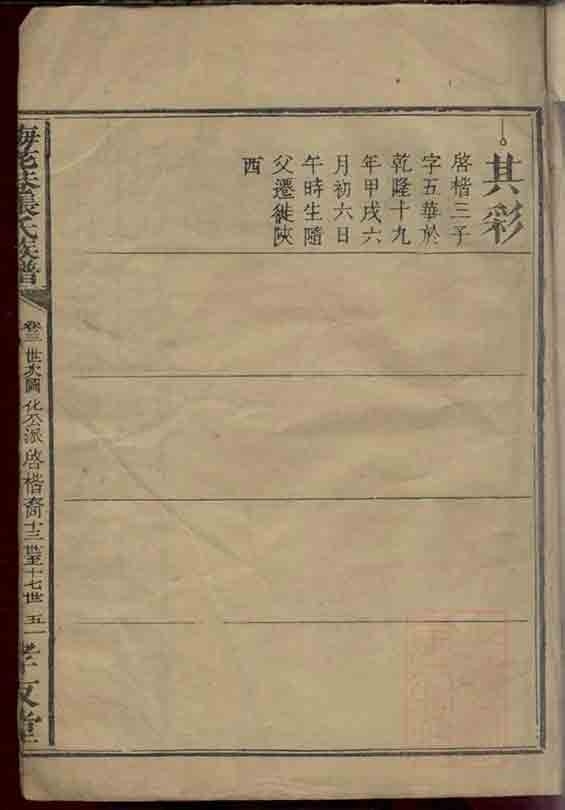 其彩
啓楷三子
字五華於
乾隆十九
年甲戌六
月初六日
午時生隨
父遷徙陝
西
張氏族譜
卷三 世次圖 化公派 啓楷裔 十三世至十七世 五一
孝友堂